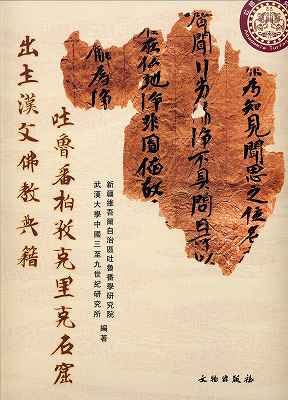 為知見聞思之位名
淨不具問曰
仏地淨非因
能為淨
吐魯番柏孜克里克石窟
出土漢文佛教典籍
新疆維吾爾自治區吐魯番學研究院
武漢大學中國三至九世紀研究所
編著
文物出版社